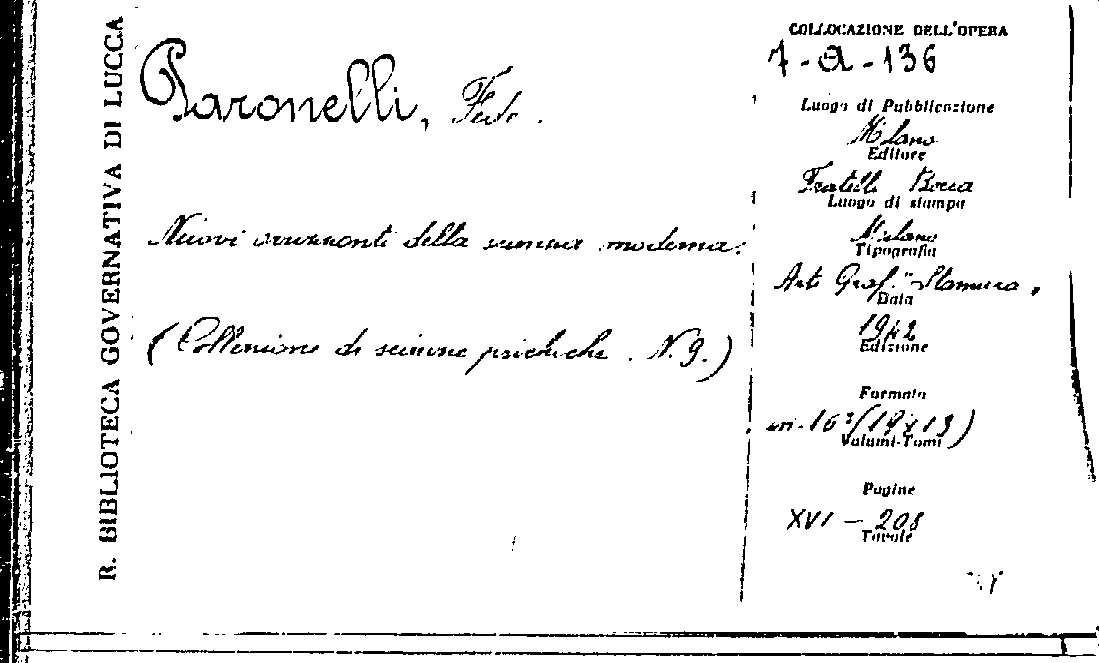 R. BIBLIOTECA GOVERNATIVA DI LUCCA
Paronelli,
Nuovi orizzonti della scienza moderna.
(Collezione di scienze psichiche. N. 9.)
COLLOCAZIONE DELL'OPERA
7-A-136
Luogo di Pubblicazione
Milano
Editore
Fratelli Bocca
Luogo di stampa
Milano
Tipografia
Arti Graf. "Stamura"
Data
1942
Edizione
Formato
in-16° (19x13)
Volumi-Tomi
Pagine
XVI - 208
Tavole